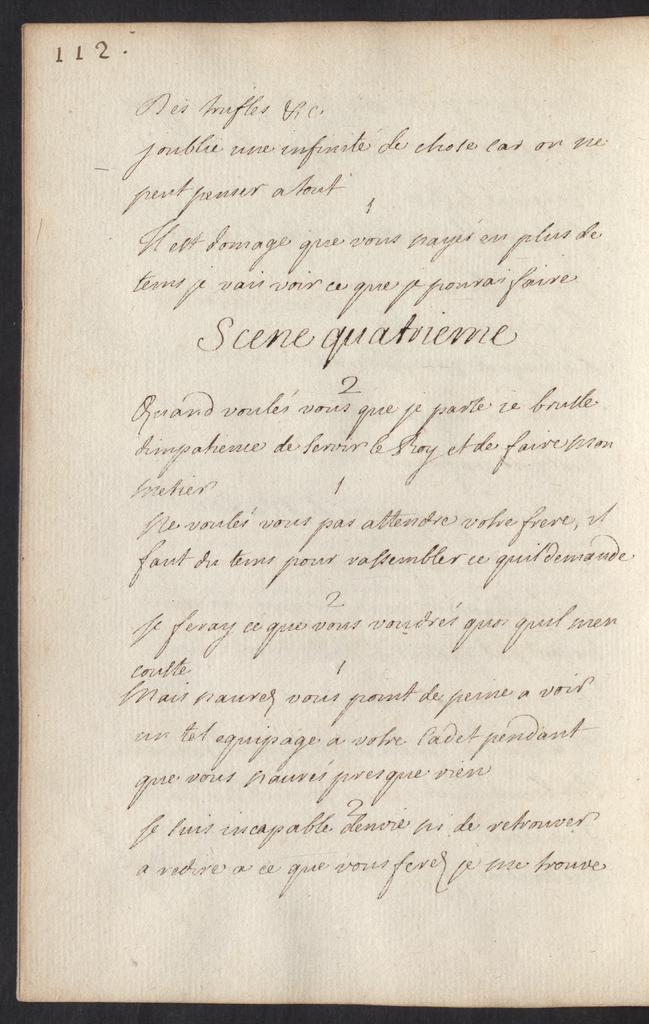 112.
Des trufles &c.
joublie une infinité de chose car on ne
peut penser a tout
1
Il est domage que vous nayés eu plus de
tems je vais voir ce que je pourai faire
Scene quatrieme
2
Quand voulés vous que je parte je brusle
dimpatience de servir le Roy et de faire mon
metier
1
Ne voulés vous pas attendre votre frere, il
faut du tems pour rassembler ce quil demande
2
Je feray ce que vous voudrés quoi quil men
couste
1
Mais naurez vous point de peine a voir
un tel equipage a votre Cadet pendant
que vous naurés presque rien
2
Je suis incapable denvie ni de retrouver
a redire a ce que vous ferez je me trouve